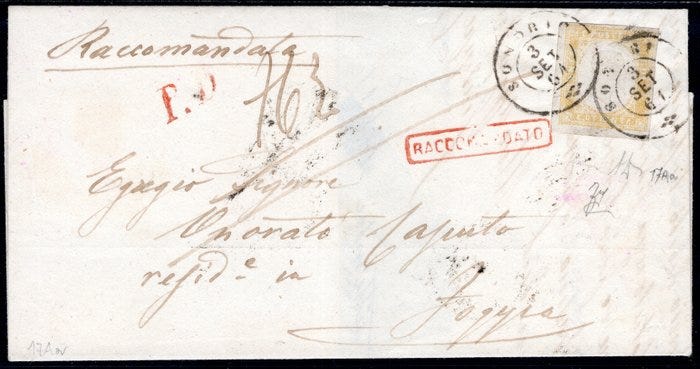 Raccomandata
P.D
SONDRIO
3
SET
61
SON
3
SET
61
RACCOMANDATO
Egregio Signore
Onorato Caputo
resid.e in
Foggia
17Aa